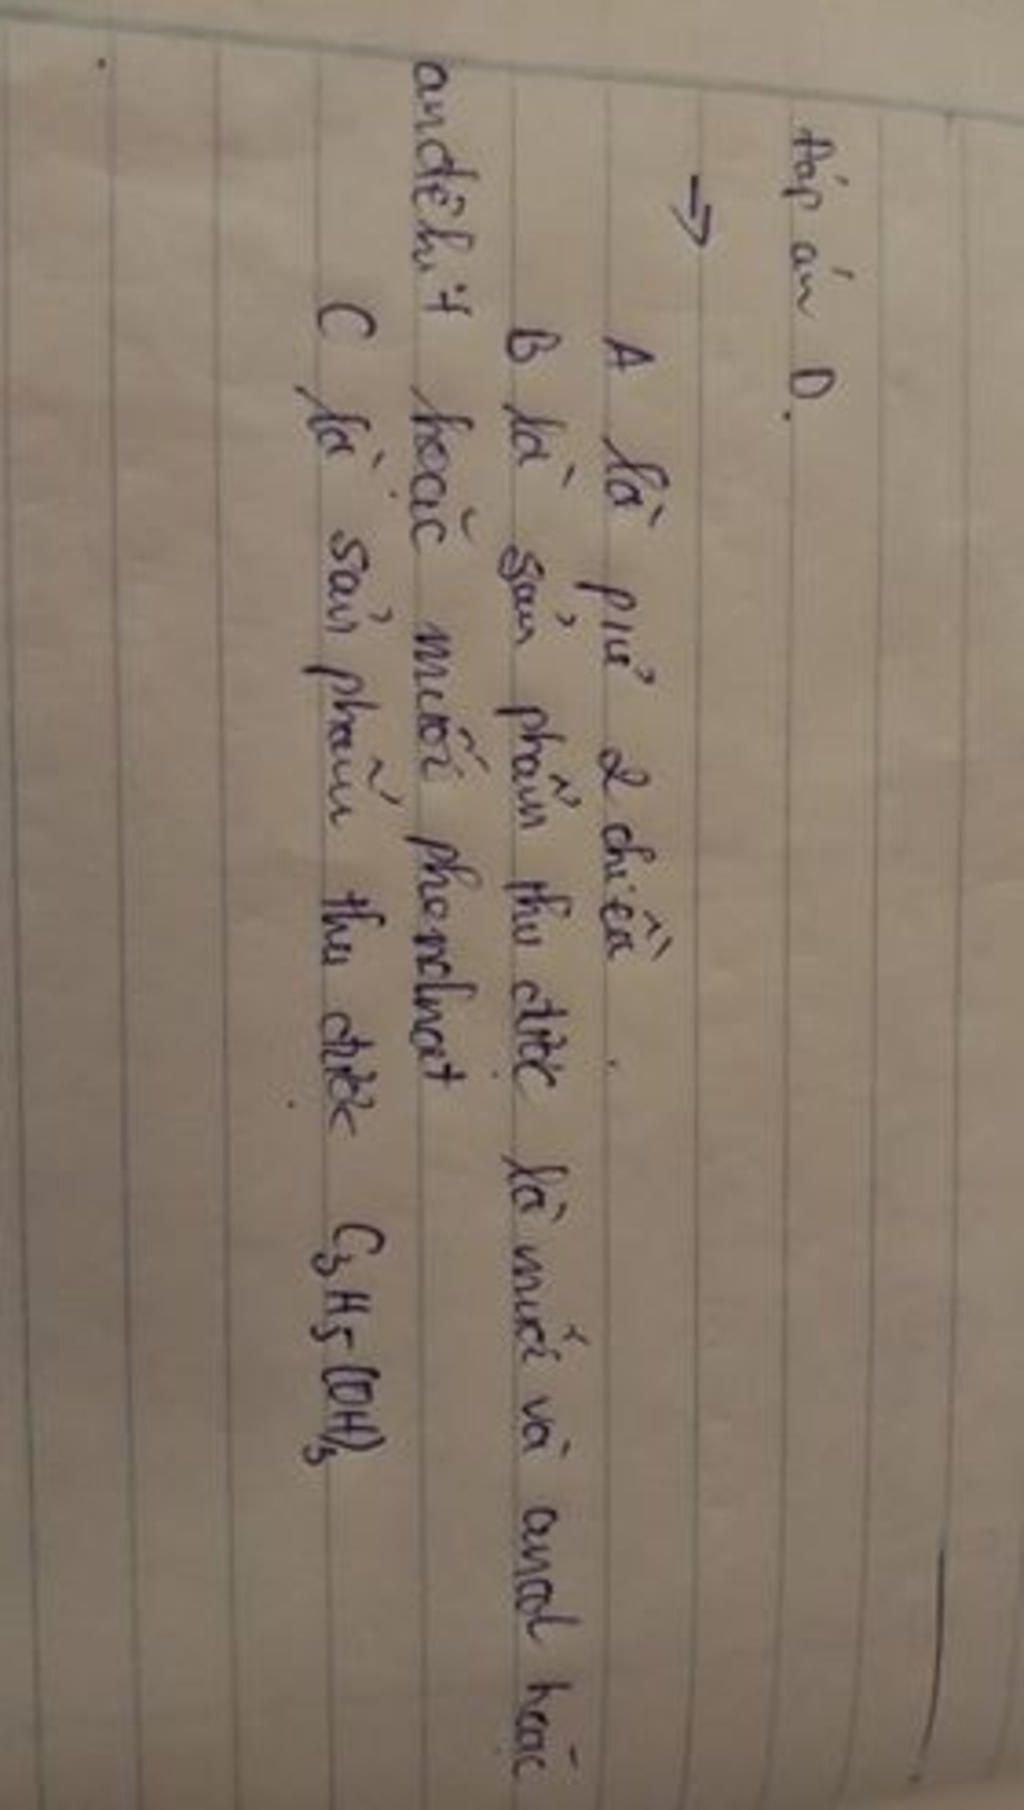 Đáp án D.
⇒
A là pứ 2 chiều.
B là sản phẩm thu được là muối và ancol hoặc
anđêhit hoặc muối phenolnat
C là sản phẩm thu được C₃H₅(OH)₃